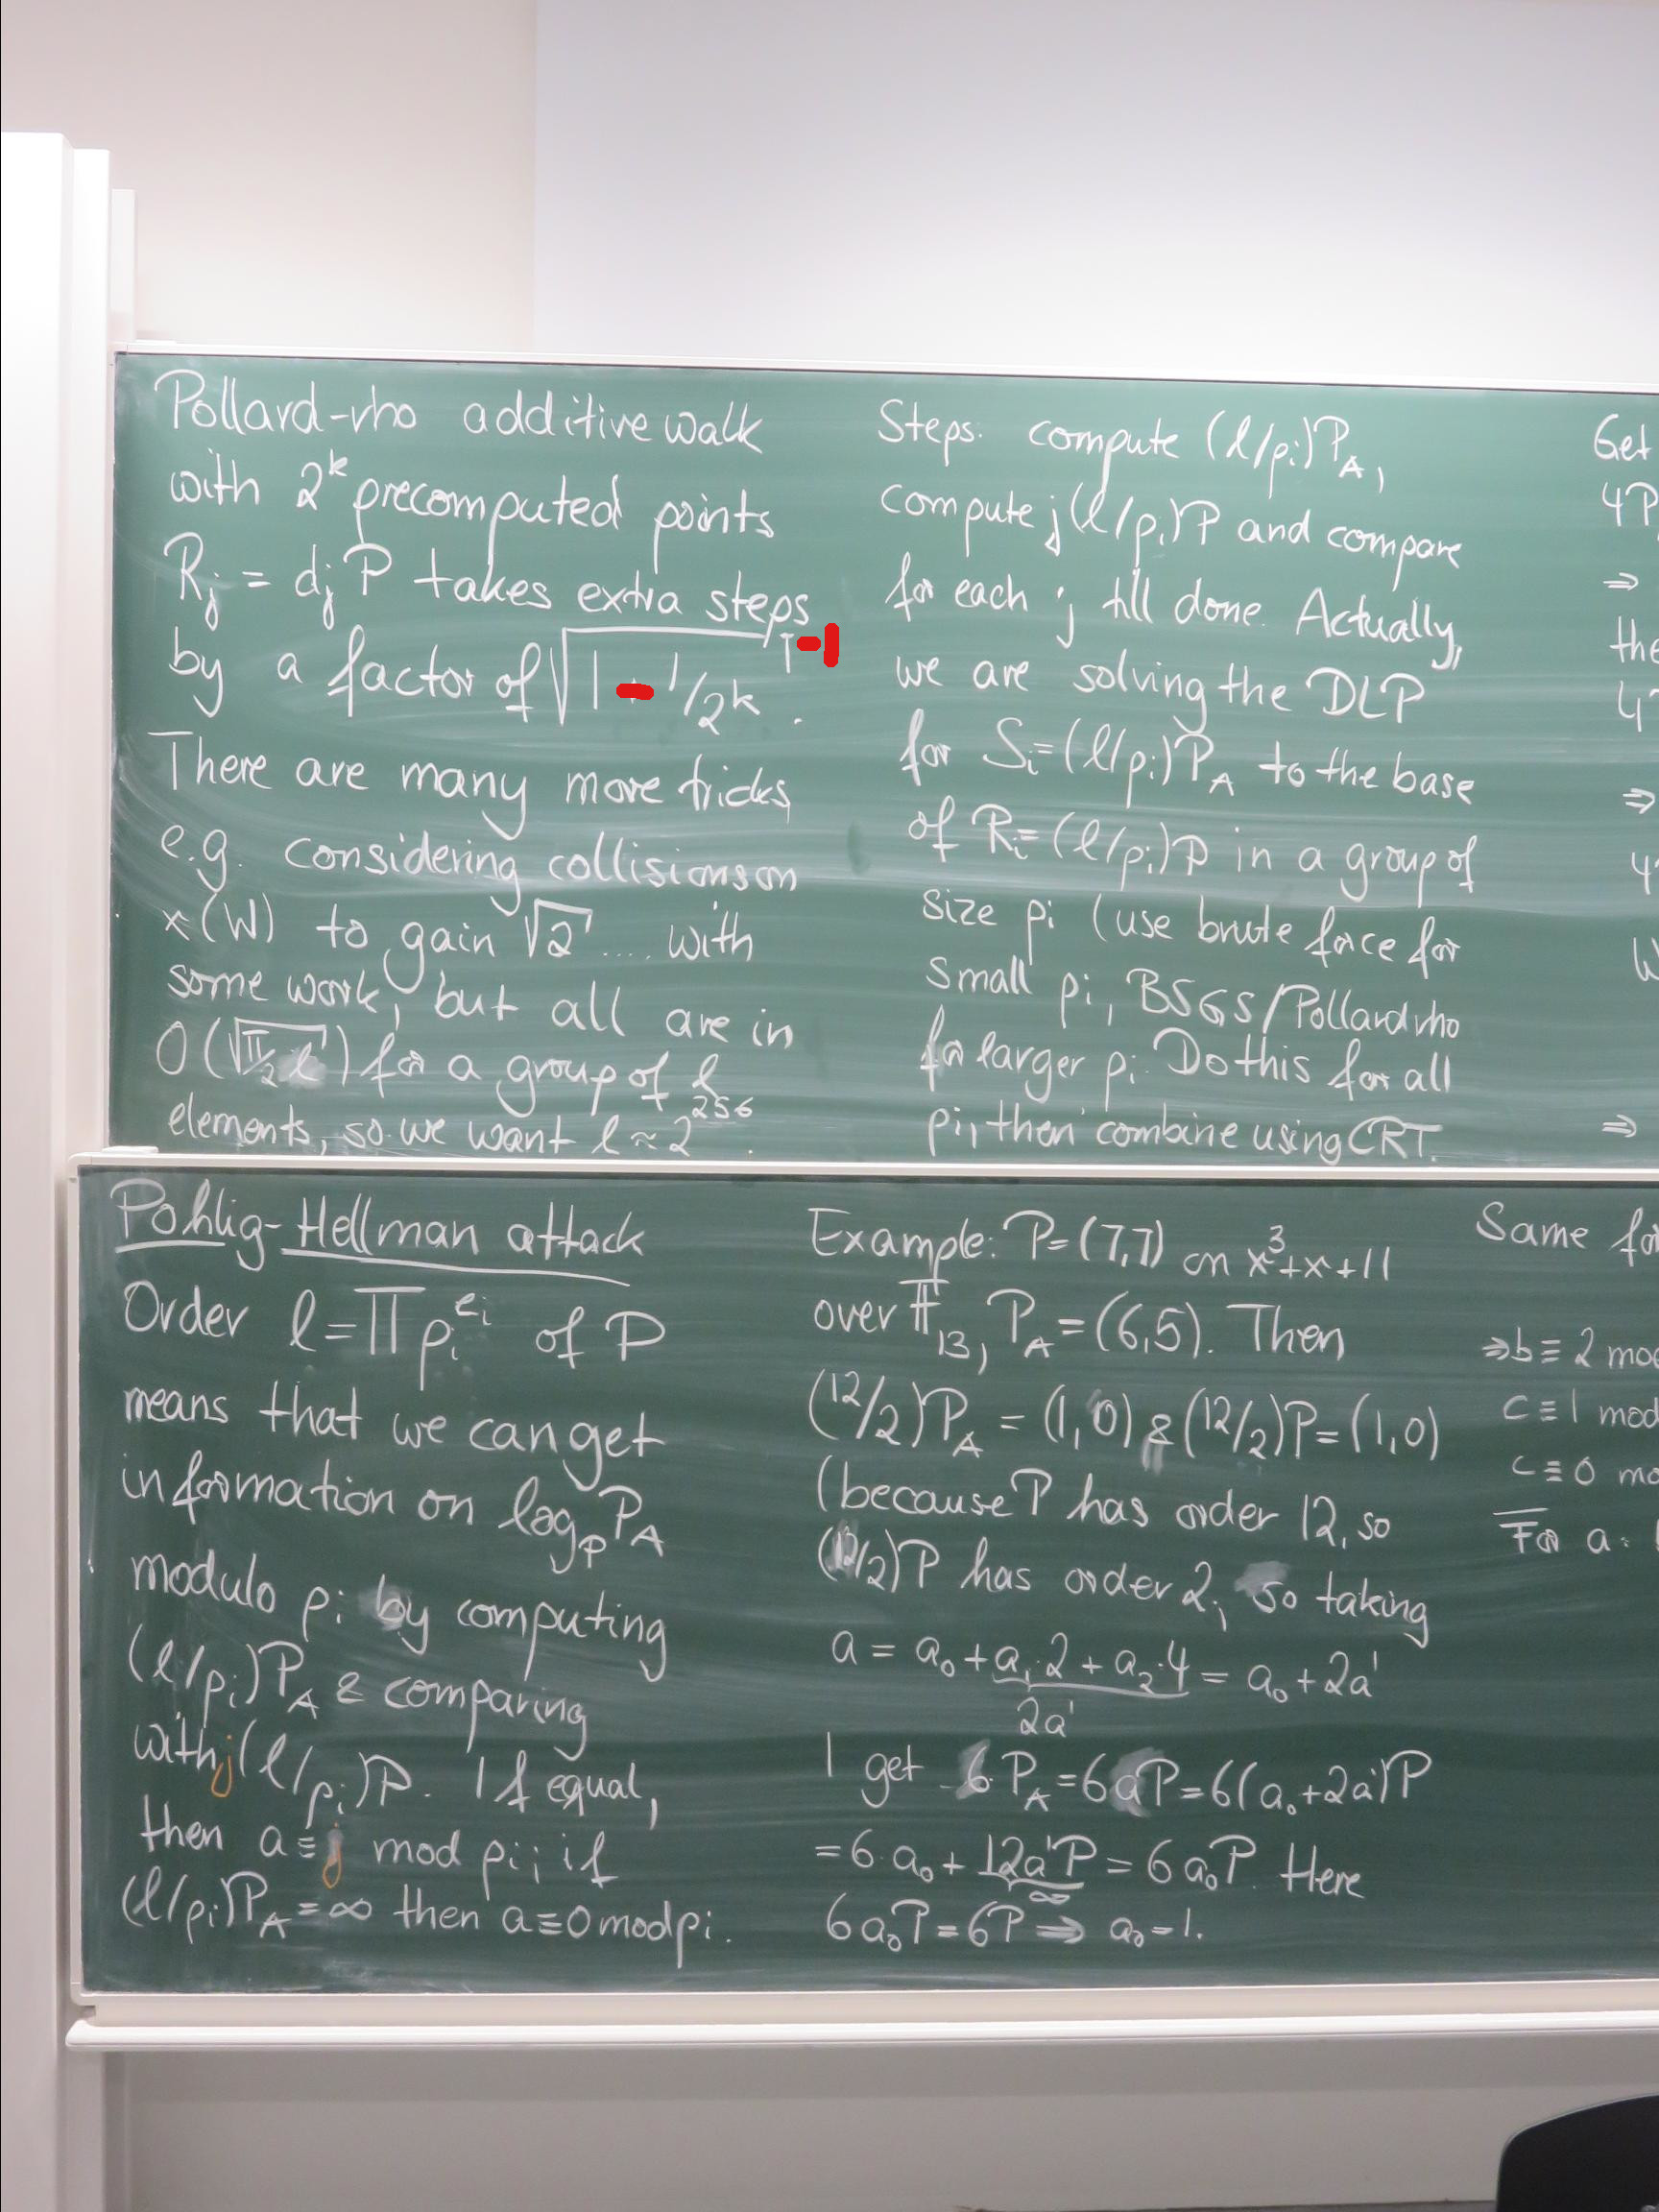 Pollard-rho additive walk
with 2^k precomputed points
R_j = d_j P takes extra steps
by a factor of √(1 - 1/2^k)^-1.
There are many more tricks,
e.g. considering collisions on
x(W) to gain √2 .... with
some work, but all are in
O(√(π/2 l)) for a group of l
elements, so we want l ≈ 2^256.
Steps: compute (l/pi)P_A,
compute j(l/pi)P and compare
for each j till done. Actually,
we are solving the DLP
for S_i=(l/pi)P_A to the base
of R_i=(l/pi)P in a group of
size pi (use brute force for
small pi, BSGS/Pollard rho
for larger pi. Do this for all
pi, then combine using CRT.
Get
4P
⇒
the
4
⇒
4
W
⇒
Pohlig-Hellman attack
Order l=∏ p_i^e_i of P
means that we can get
information on log_P P_A
modulo pi by computing
(l/pi)P_A & comparing
with j(l/pi)P. If equal,
then a≡j mod pi; if
(l/pi)P_A=∞ then a≡0 mod pi.
Example: P=(7,7) on x^3+x+11
over F_13, P_A=(6,5). Then
(12/2)P_A = (1,0) & (12/2)P=(1,0)
(because P has order 12, so
(12/2)P has order 2, so taking
a = a_0+a_1·2+a_2·4 = a_0+2a'
2a'
I get 6P_A=6aP=6(a_0+2a')P
=6·a_0+12a'P = 6a_0P. Here
∞
6a_0P=6P ⇒ a_0=1.
Same for
⇒b≡2 mod
c≡1 mod
c≡0 mo
For a: